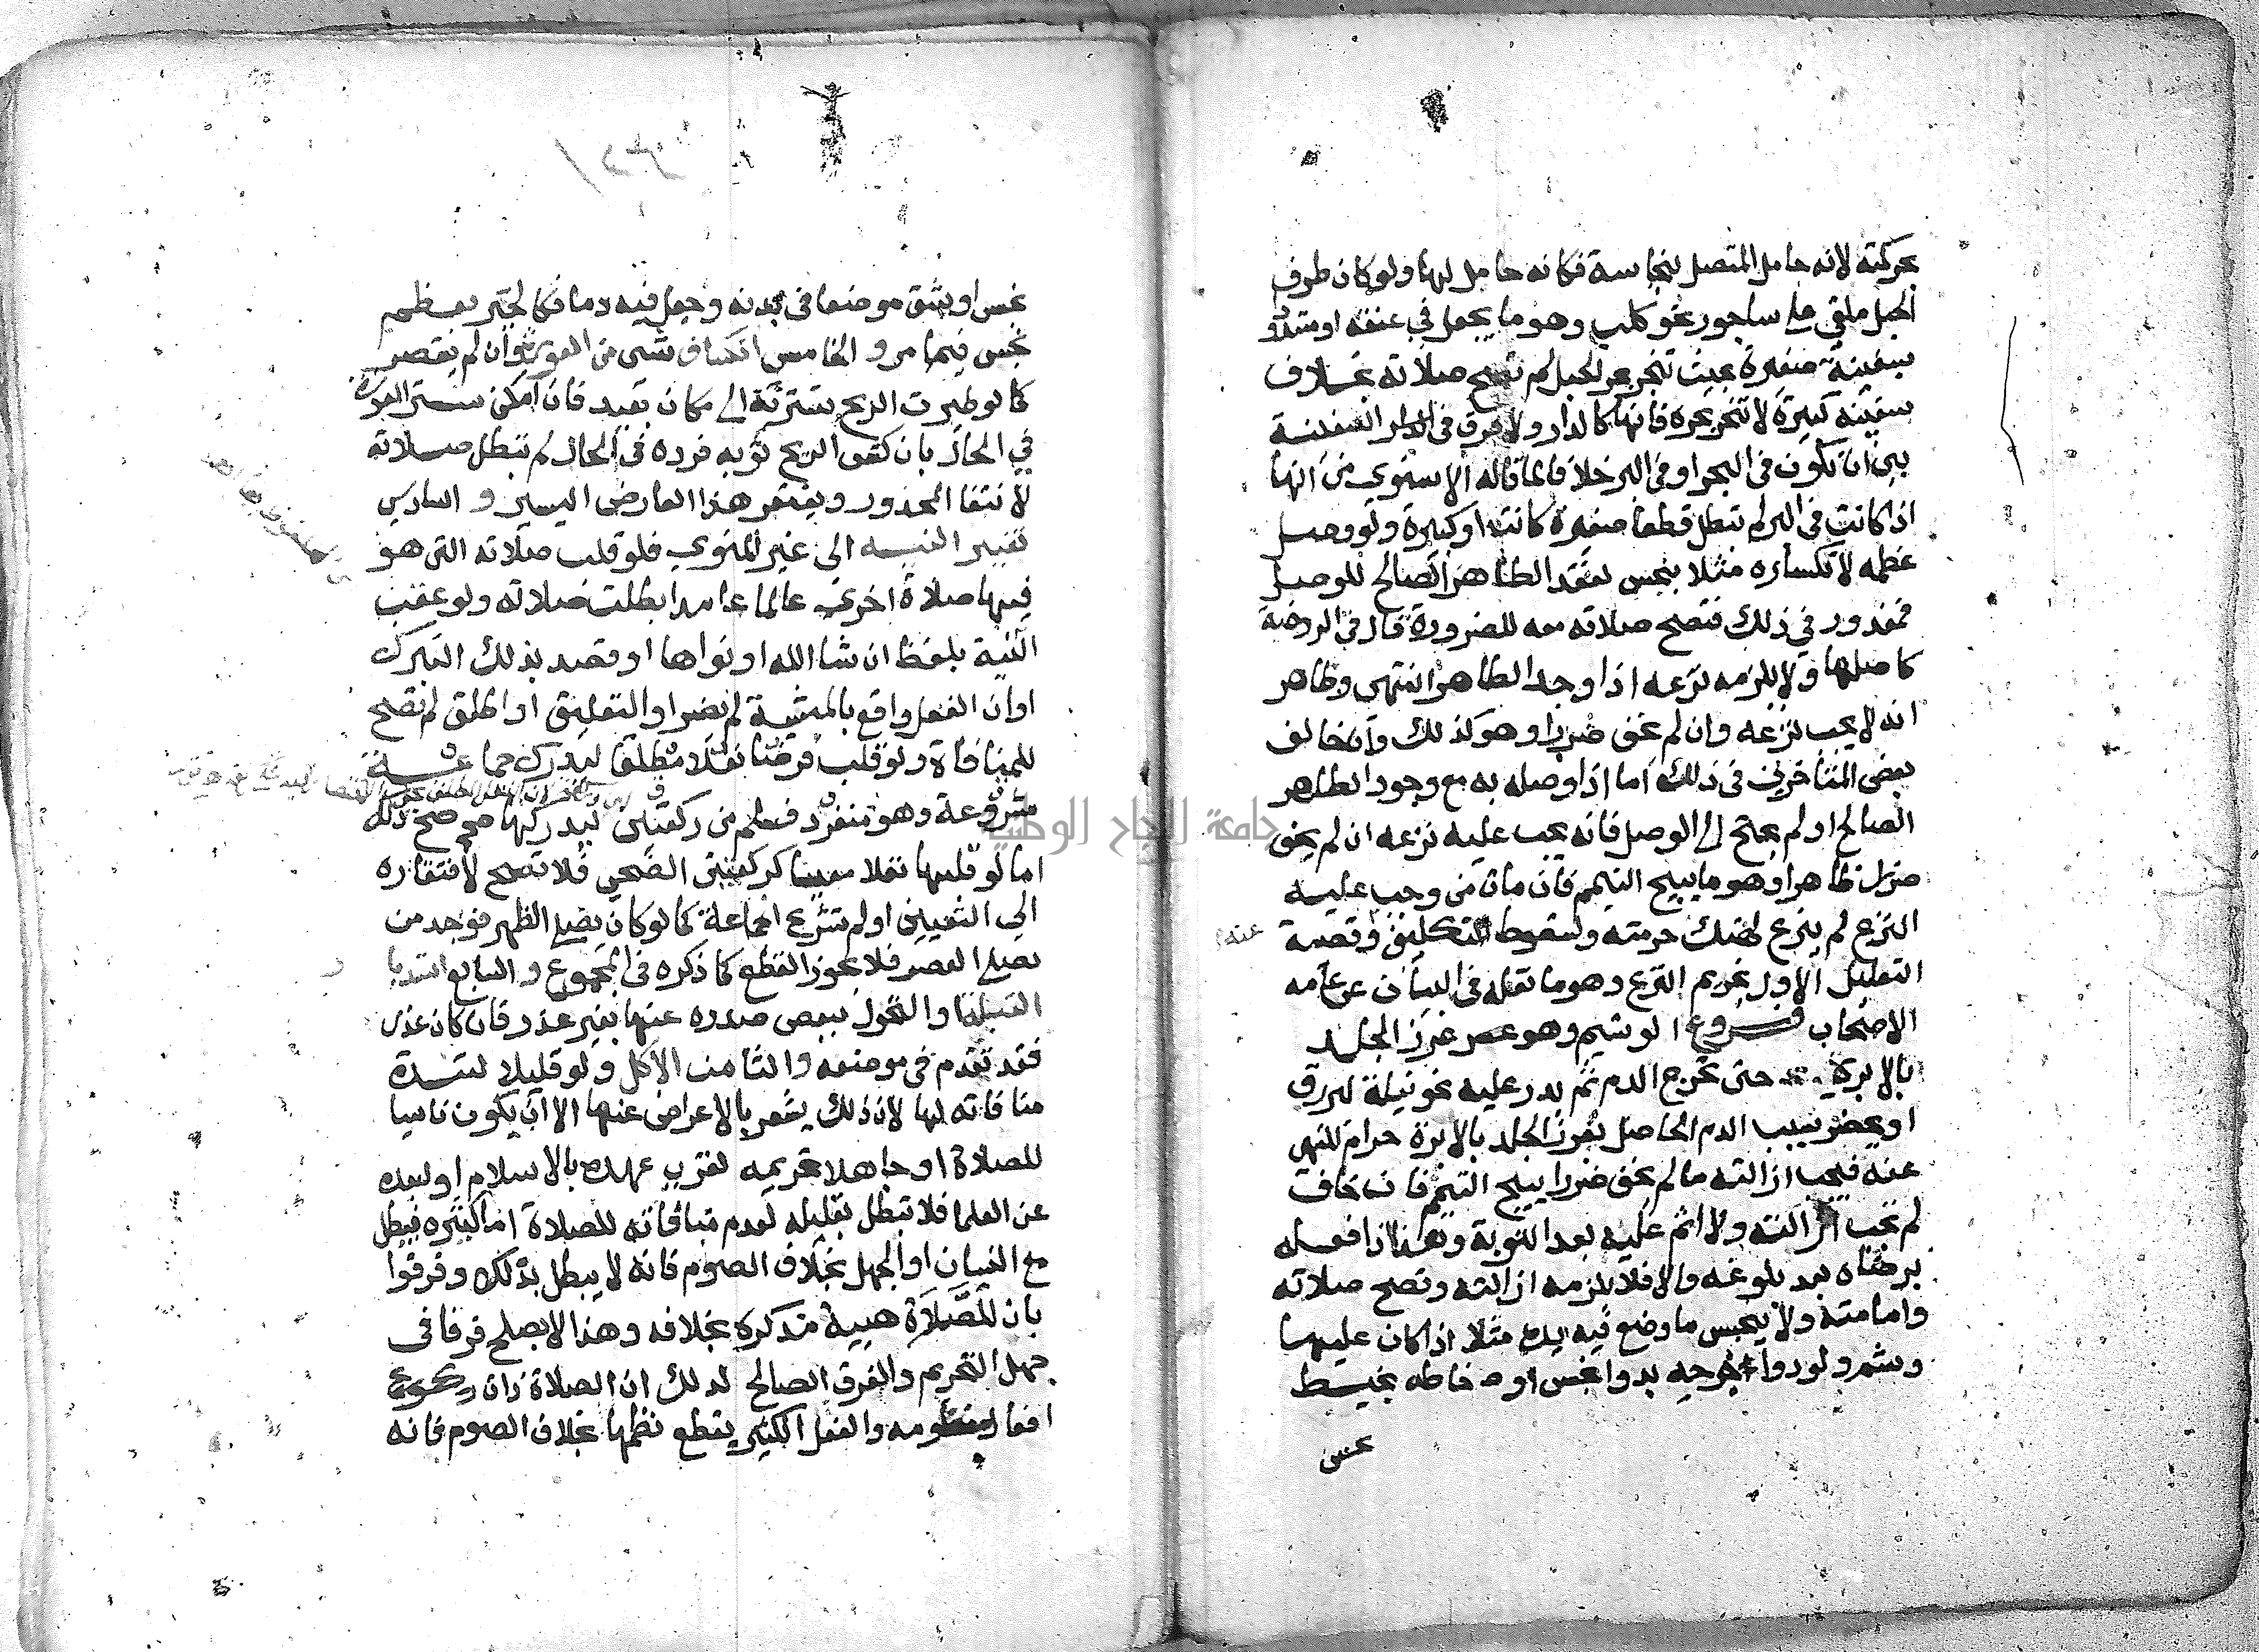 بحركته لانه حامل المتصل بنجاسة فكانه حامل لها ولو كان طرف
الحبل ملقي على ساجور نحو كلب وهو ما يجعل في عنقه او مشدود
بسفينة صغيرة بحيث تنجر بجر الحبل لم تصح صلاته بخلاف
سفينة كبيرة لا تنجر بجره فانها كالدار ولا فرق في السفينة
بين ان تكون في البحر او في البر خلافا لما قاله الاسنوي من انها
اذا كانت في البر لم تبطل قطعا صغيرة كانت او كبيرة ولو وصل
عظمه لانكساره مثلا بنجس لفقد الطاهر الصالح للوصل
فمعذور في ذلك فتصح صلاته معه للضرورة قال في الروضة
كاصلها ولا يلزمه نزعه اذا وجد الطاهر انتهى وظاهر
انه لا يجب نزعه وان لم يخف ضررا وهو كذلك وان خالف
بعض المتاخرين في ذلك اما اذا وصله به مع وجود الطاهر
الصالح او لم يحتج الى الوصل فانه يجب عليه نزعه ان لم يخف
ضررا ظاهرا وهو ما يبيح التيمم فان مات من وجب عليه
النزع لم ينزع لهتك حرمته ولسقوط التكليف وقضية
عنه
التعليل الاول تحريم النزع وهو ما نقله في البيان عن عامة
الاصحاب فروع الوشم وهو غرز الجلد
بالابرة حتى يخرج الدم ثم يدر عليه نحو نيلة ليزرق
او يخضر بسبب الدم الحاصل بغرز الجلد بالابرة حرام للنهى
عنه فيجب ازالته ما لم يخف ضررا يبيح التيمم فان خاف
لم تجب ازالته ولا اثم عليه بعد التوبة وهذا اذا فعله
برضاه بعد بلوغه والا فلا يلزمه ازالته وتصح صلاته
وامامته ولا ينجس ما وضع فيه يده مثلا اذا كان عليها
وشم ولو دوا جرحه بدوا نجس او خاطه بخيط
نجس
نجس او شق موضعا في بدنه وجعل فيه دما فكالجبر بعظم
نجس فيما مر و الخامس انكشاف شى من العورة وان لم يقصر
كما لو طيرت الريح سترته الى مكان بعيد فان امكن ستر العورة
في الحال بان كشف الريح ثوبه فرده في الحال لم تبطل صلاته
لانتفا المحذور ويغتفر هذا العارض اليسير و السادس
تغيير النية الى غير المنوي فلو قلب صلاته التى هو
فيها صلاة اخرى عالما عامدا بطلت صلاته ولو عقب
النية بلفظ ان شا الله او نواها او قصد بذلك التبرك
او ان الفعل واقع بالمشية لم يضر او التعليق او اطلق لم تصح
للمنافاة ولو قلب فرضا نفلا مطلقا ليدرك جماعة
مشروعة وهو منفرد فسلم من ركعتين ليدركها صح ذلك
اما لو قلبها نفلا معينا كركعتى الضحى فلا تصح لافتقاره
الى التعيين او لم تشرع الجماعة كما لو كان يصلي الظهر فوجد من
يصلي العصر فلا يجوز القطع كما ذكره في المجموع و السابع استدبار
القبلة او التحول ببعض صدره عنها بغير عذر فان كان عذر
فقد تقدم في موضعه والثامن الاكل ولو قليلا لشدة
منافاته لها لان ذلك يشعر بالاعراض عنها الا ان يكون ناسيا
للصلاة او جاهلا تحريمه لقرب عهده بالاسلام او لبعده
عن العلما فلا تبطل بقليله لعدم منافاته للصلاة اما كثيره فيبطل
مع النسيان او الجهل بخلاف الصوم فانه لا يبطل بذلك وفرقوا
بان للصلاة هيية مذكرة بخلافه وهذا لا يصلح فرقا في
جهل التحريم والفرق الصالح لذلك ان الصلاة ذات
افعال منظومه والفعل الكثير يقطع نظمها بخلاف الصوم فانه
جامعة النجاح الوطنية